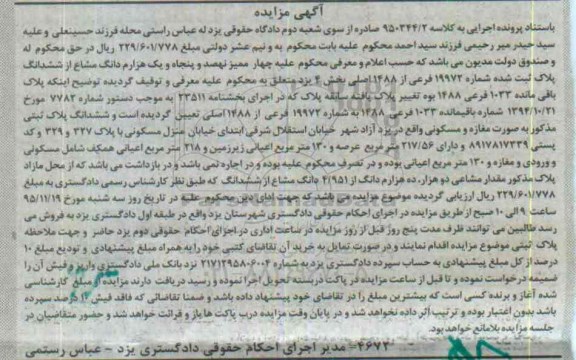 آگهی مزایده
باستناد پرونده اجرایی به کلاسه ۹۵۰۳۴۴/۲ صادره از سوی شعبه دوم دادگاه حقوقی یزد له عباس راستی محله فرزند حسینعلی و علیه
سید حیدر میر رحیمی فرزند سید احمد محکوم علیه بابت محکوم به و نیم عشر دولتی مبلغ ۲۲۹/۶۰۱/۷۷۸ ریال در حق محکوم له
و صندوق دولت مدیون می باشد که حسب اعلام و معرفی محکوم علیه چهار ممیز نهصد و پنجاه و یک هزارم دانگ مشاع از ششدانگ
پلاک ثبت شده شماره ۱۹۹۷۲ فرعی از ۱۴۸۸ اصلی بخش ۴ یزد متعلق به محکوم علیه معرفی و توقیف گردیده توضیح اینکه پلاک
باقی مانده ۱۰۳۳ فرعی ۱۴۸۸ بوه تغییر پلاک سابقه پلاک که در اجرای بخشنامه ۲۳۵۱۱ به موجب دستور شماره ۷۷۸۲ مورخ
۱۳۹۴/۱۰/۲۱ شماره باقیمانده ۱۰۳۳ فرعی ۱۴۸۸ به شماره ۱۹۹۷۲ فرعی از ۱۴۸۸ اصلی تعیین گردیده است و ششدانگ پلاک ثبتی
مذکور به صورت مغازه و مسکونی واقع در یزد آزاد شهر خیابان استقلال شرقی ابتدای خیابان منزل مسکونی با پلاک ۳۲۷ و ۳۲۹ و کد
پستی ۸۹۱۷۸۱۷۳۳۹ و دارای ۲۱۷/۵۶ متر مربع عرصه و ۱۳۰ متر مربع اعیانی زیرزمین و ۲۱۸ متر مربع اعیانی همکف شامل مسکونی
و ورودی و مغازه و ۱۳۰ متر مربع اعیانی بوده و در تصرف محکوم علیه بوده و در اجاره نمی باشد و در بازداشت می باشد که از محل مازاد
پلاک مذکور مقدار مشاعی دو هزار، ده هزارم دانگ از ۴/۹۵۱ دانگ مشاع از ششدانگ که طبق نظر کارشناس رسمی دادگستری به مبلغ
۲۲۹/۶۰۱/۷۷۸ ریال ارزیابی گردیده موضوع مزایده می باشد که جهت ادای دین محکوم علیه در تاریخ روز سه شنبه مورخ ۹۵/۱۱/۱۹
ساعت ۹ الی ۱۰ صبح از طریق مزایده در اجرای احکام حقوقی دادگستری شهرستان یزد واقع در طبقه اول دادگستری یزد به فروش می
رسد طالبین می توانند ظرف مدت پنج روز قبل از روز مزایده در ساعت اداری در اجرای احکام حقوقی دوم یزد حاضر و جهت ملاحظه
پلاک ثبتی موضوع مزایده اقدام نمایند و در صورت تمایل به خرید آن تقاضای کتبی خود را به همراه مبلغ پیشنهادی و تودیع مبلغ ۱۰
درصد از کل مبلغ پیشنهادی به حساب سپرده دادگستری یزد به شماره ۲۱۷۱۲۹۵۸۰۶۰۰۴ نزد بانک ملی دادگستری واریز و فیش آن را
ضمیمه درخواست نموده و تا قبل از ساعت مزایده در پاکت دربسته تحویل اجرا نموده و رسید دریافت دارند مزایده از مبلغ کارشناسی
شده آغاز و برنده کسی است که بیشترین مبلغ را در تقاضای خود پیشنهاد داده باشد و ضمنا تقاضائی که فاقد فیش ۱۰ درصد سپرده
باشد بدون اعتبار بوده و ترتیب اثر داده نخواهد شد و در پایان وقت مزایده درب پاکت ها باز و قرائت خواهد شد و حضور متقاضیان در
جلسه مزایده بلامانع خواهد بود.
۴۶۷۲- مدیر اجرای احکام حقوقی دادگستری یزد - عباس رستمی